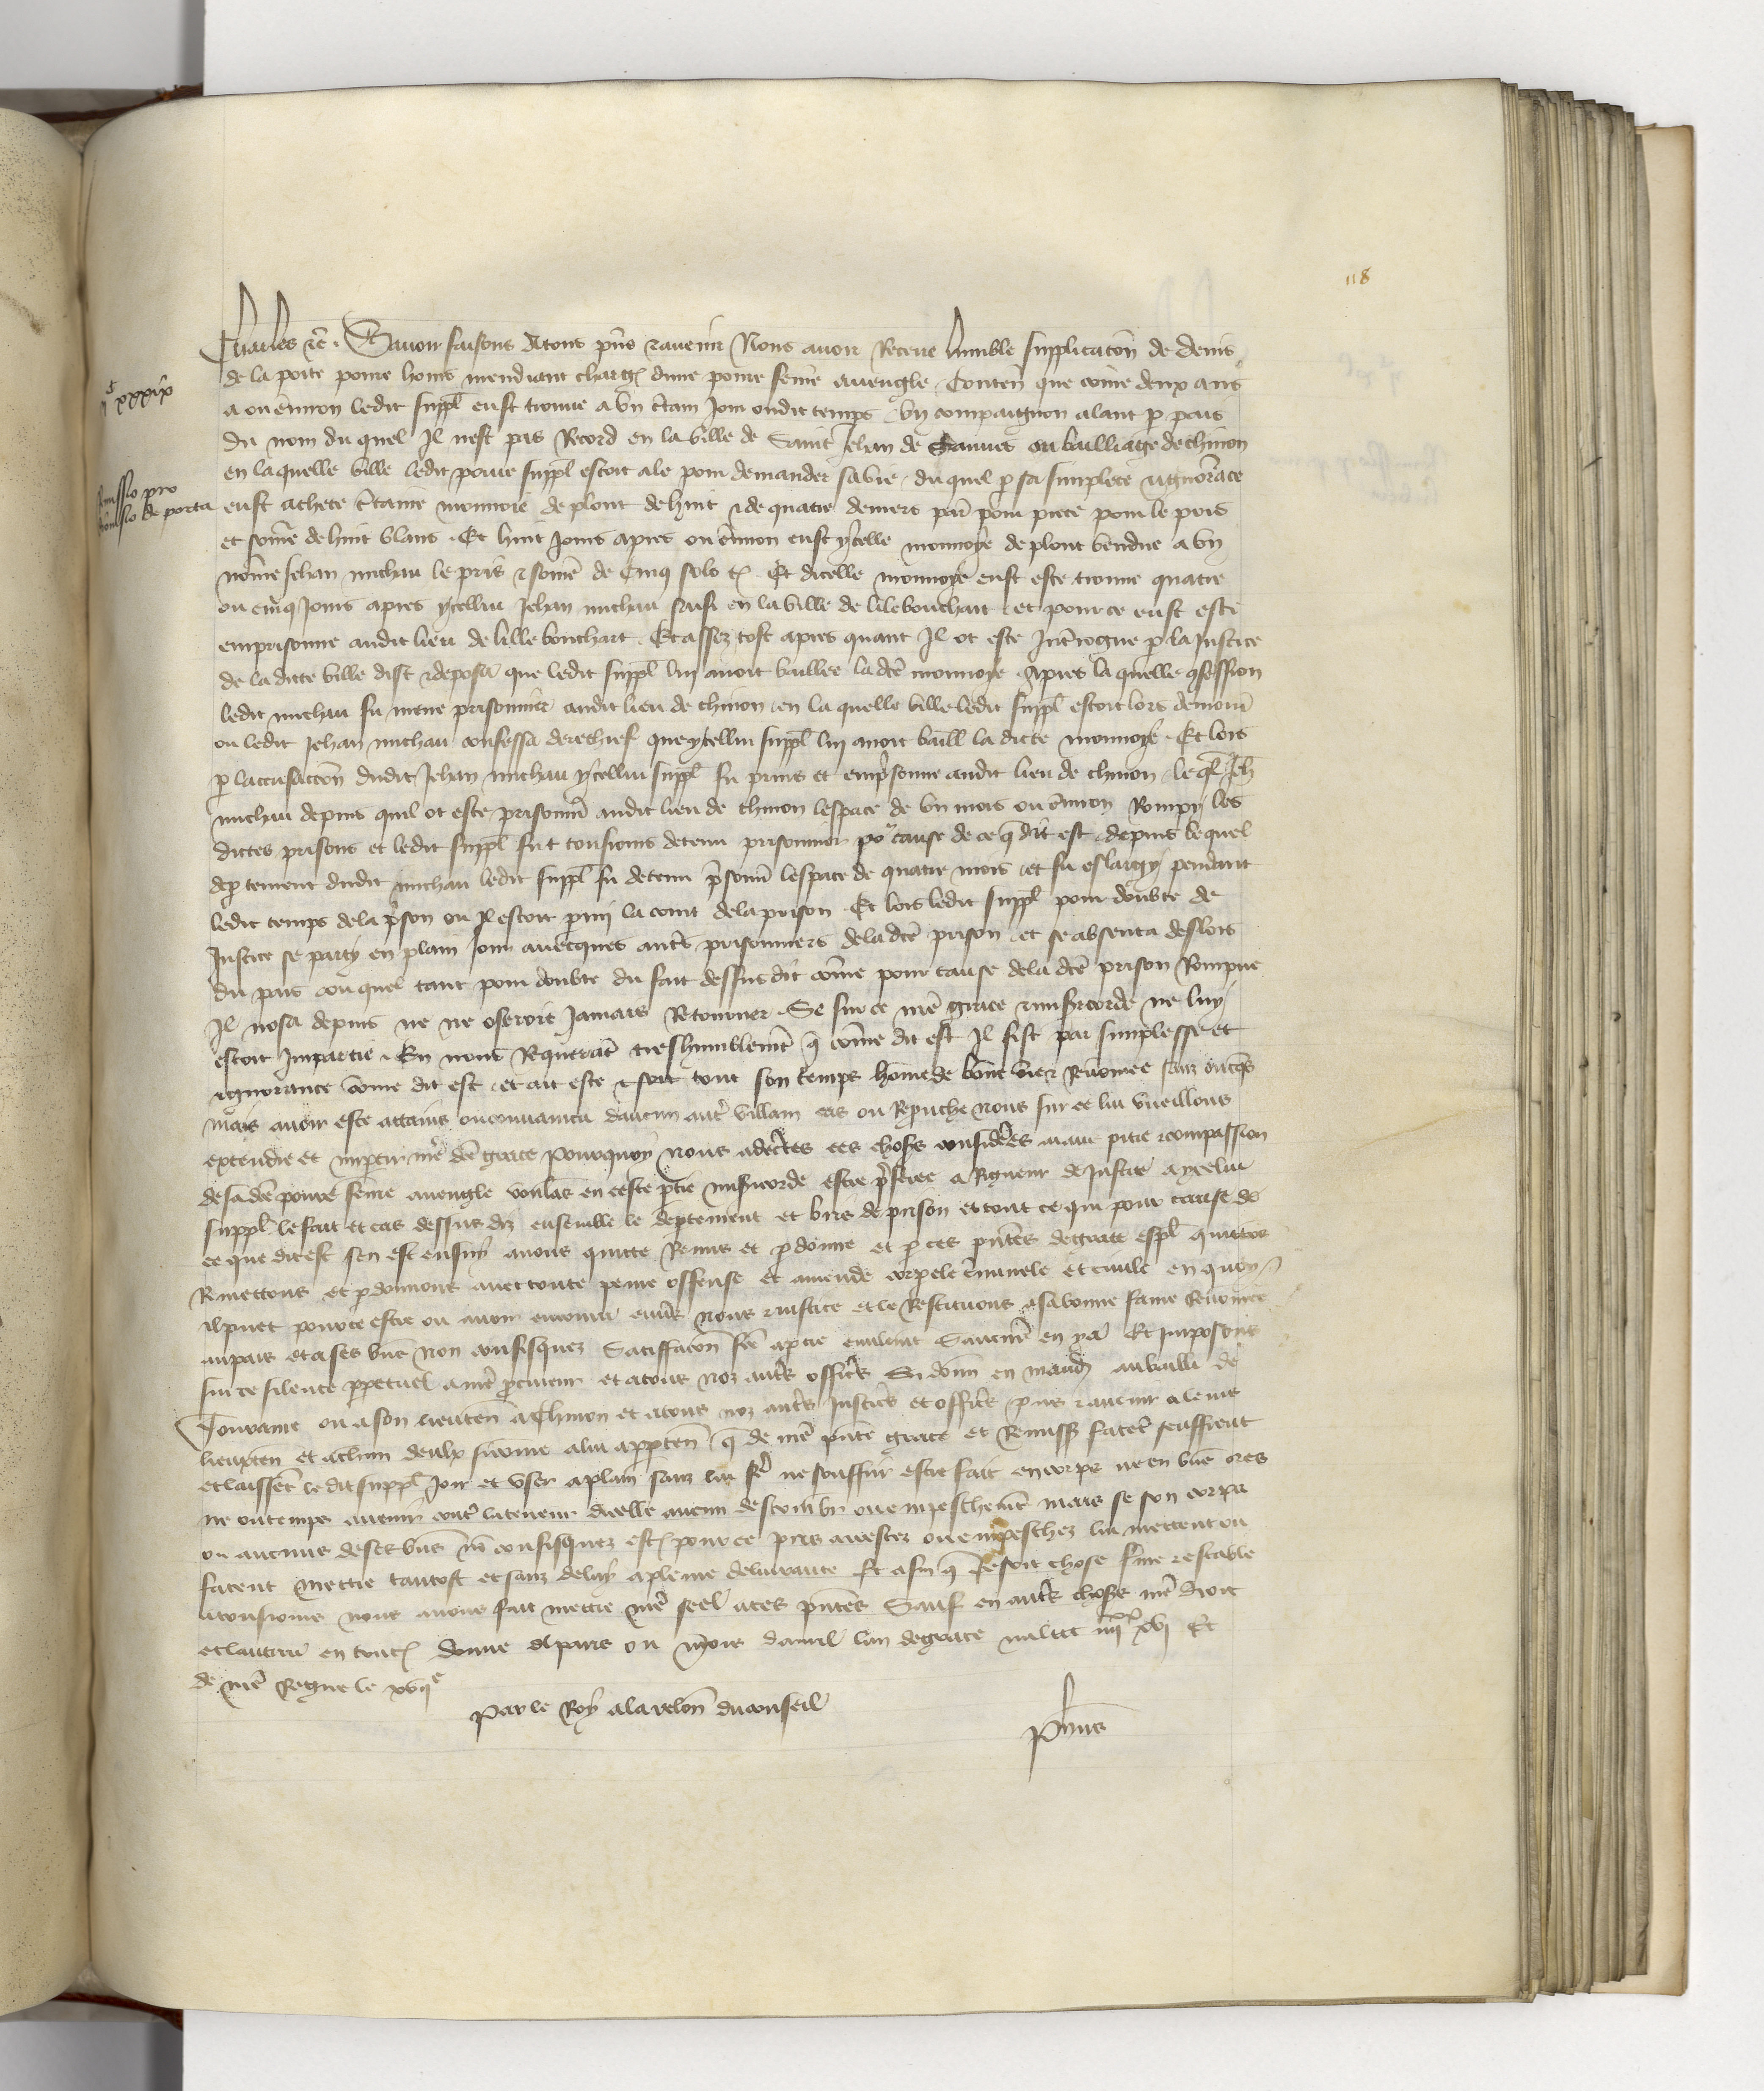 118
Charles etc. Savoir faisons a tous pñs et avenir Nous avoir Receue humble supplicacõn de denis
de la porte povre homs mendiant charg dune povre feme aveugle Conteñ que cõme deux ans
a ou environ ledit suppl eust trouve a un c̃tain Jour oudit temps un compaignon alant p pais
du nom du quel Il nest pas Record en la ville de Saint Jehan de ou bailliage de chinon
en laquelle ville ledit povre suppl estoit ale pour demander sa vie du quel p sa simplece et ignorãce
eust achete c̃taine monnoie de plont de huit et de quatre deniers par̃ pour piece pour le pris
et sõme de huit blans. Et huit Jours apres ou environ eust ycelle monnoye de plont vendue a un
nõme Jehan michau le pris et sõme de Cinq solz t. Et dicelle monnoye eust este trouve quatre
ou cinq Jours apres ycellui Jehan michau saisi en la ville de lilebouchart et pour ce eust este
emprisonne audit lieu de lille bouchart. Et assez tost apres quant Il ot este Int̃rogue p la Justice
de la dicte ville dist et deposa que ledit suppl lui avoit baillee la dc̃e monnoye. Apres la quelle cõfession
ledit michau fu mene prisonnier audit lieu de chinon en la quelle ville ledit suppl estoit lors demour̃
ou ledit Jehan michau confessa derechief que ycellui suppl lui avoit baill la dicte monnoye. Et lors
p laccusacion dudit Jehan michau ycellui suppl fu prins et emp̃sonne audit lieu de chinon. le ql̃ Jeh̃
michau depuis quil ot este prisonñ audit lieu de chinon lespace de un mois ou environ Rompy les
dictes prisons et ledit suppl fut tousjours detenu prisonnier po cause de ce q̃ dit est. depuis lequel
dep tement dudit michau ledit suppl fu detenu p̃sonñ lespace de quatre mois et fu eslargy pendant
ledit temps de la p̃son ou Il estoit parmi la court de la prison. Et lors ledit suppl pour doubte de
Justice se party en plain Jour avecques autr̃s prisonniers de la dc̃e prison et se absenta deslors
du pais ou quel tant pour doubte du fait dessusdit cõme pour cause de la dc̃e prison Rompue
Il nosa depuis ne ne oseroit Jamais Retourner. Se sur ce nr̃e grace et misericorde ne luy
estoit Impartie. En nous Requerãt treshumblemẽt q̃ cõme dit est Il fist par simplesse et
ignorance cõme dit est et ait este et soit tout son temps hõme de bonne vie et Renõmee sanz oncq̃s
mais avoir este attains ou convaincu daucun autr̃ villain cas ou Reprouche nous sur ce lui vueillons
extendre et impartir nr̃e dc̃e grace pourquoy nous adcertes ces choses considerees aiant pitie et compassion
de sa dc̃e povre feme aveugle voulãs en ceste p̃tie misericorde estre p̃feree a Rigueur de Justice a ycelui
suppl le fait et cas dessus diz ensemble le deptement et bris de prison et tout ce qui pour cause de
ce que dit est sen est ensuy avons quicte Remis et pdonne et p ces pñtes de grace espl quictons
Remettons et pdonnons avec toute peine offense et amende corpele c̃minele et civile en quoy
il puet pour ce estre ou avoir encouru envers nous et Justice et le Restituons a sa bonne fame Renõmee
au pais et a ses biens non confisquez Satiffacõn fce a ptie civilmt Sauc̃une en y a Et Imposons
sur ce silence ppetuel a nr̃e procureur et a tous noz autr̃s officiers Si donñ en mand au bailli de
Touraine ou a son lieuteñ a Chinon et a tous noz autr̃s Justic̃s et offic̃s pñs et avenir ou a leurs
lieuxteñ et a chun deulx si cõme a lui appteñ q̃ de nr̃e pñte grace et Remiss facent seuffrent
et laissẽt le dit suppl Jouir et user a plain sanz lui fe ne souffrir estre fait en corps ne en biens ores
ne ou temps avenir contr̃ la teneur dicelle aucun destourbr ou empeschemt mais se son corps
ou aucuns de ses biens nõ confisquez estoient pour ce pris arrestez ou empeschez lui mettent ou
facent mettre tantost et sanz delay a pleine delivrance Et afin q̃ ce soit chose ferme et estable
a tousjours nous avons fait mettre nr̃e seel a ces pñtes Sauf en autr̃s choses nr̃e droit
et lautrui en toutes donne a Paris ou mois davril lan de grace mil ccc iiiixx xvi Et
de nr̃e Regne le xvie
Par le Roy a la relon du conseil
P
iic xxxix
Remissio pro
Dionisio de porta